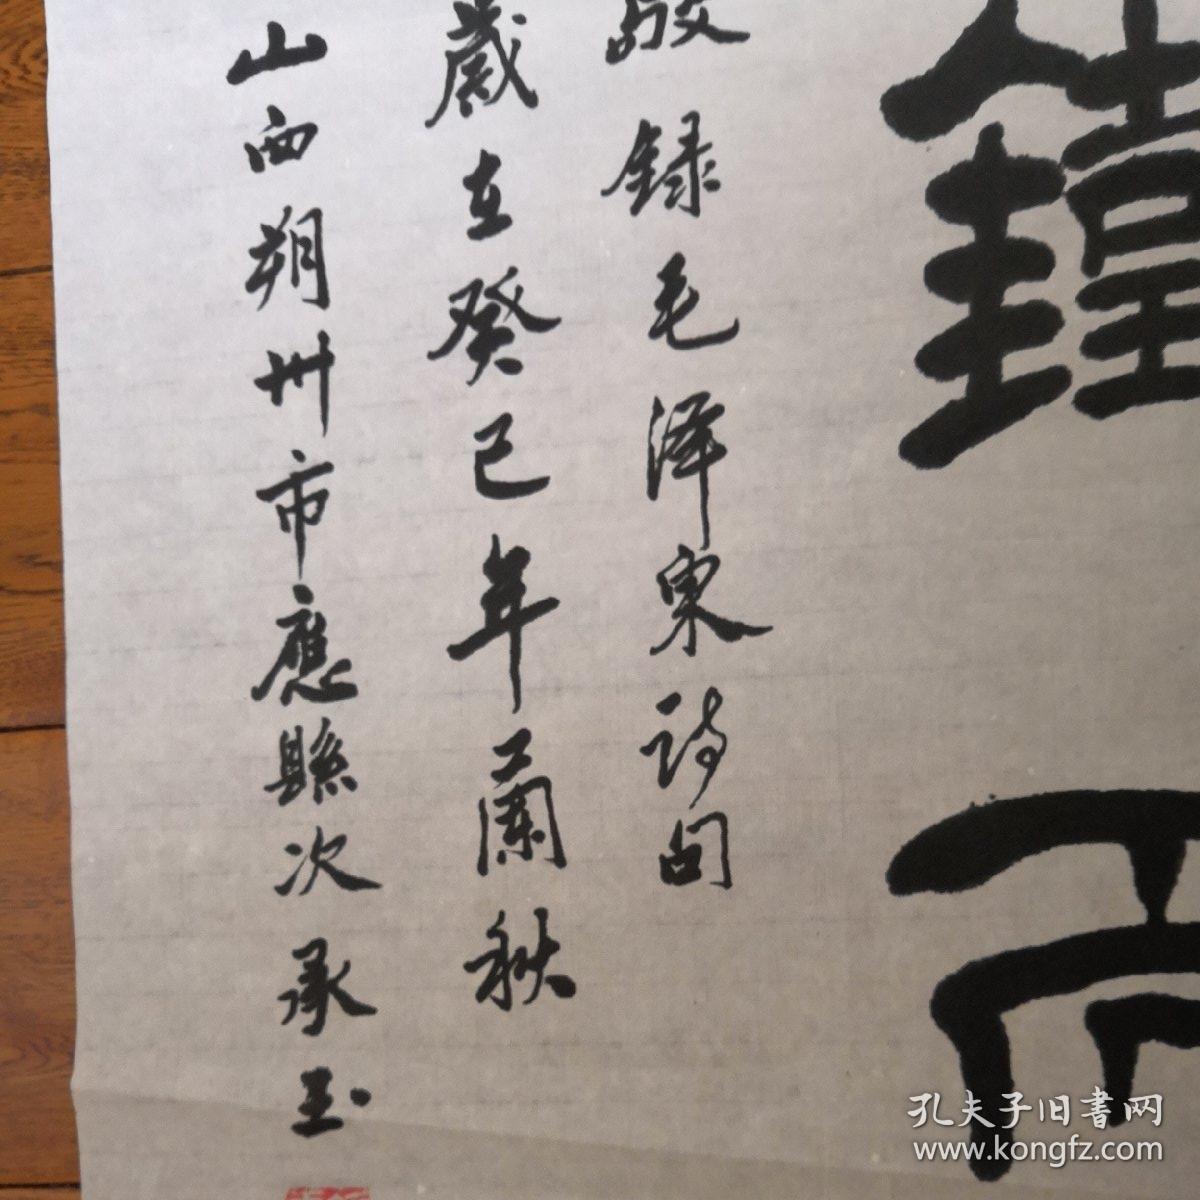 敬録毛泽東詩句
歲在癸巳年蘭秋
山西朔州市應縣次承玉
孔夫子旧書网
www.kongfz.com